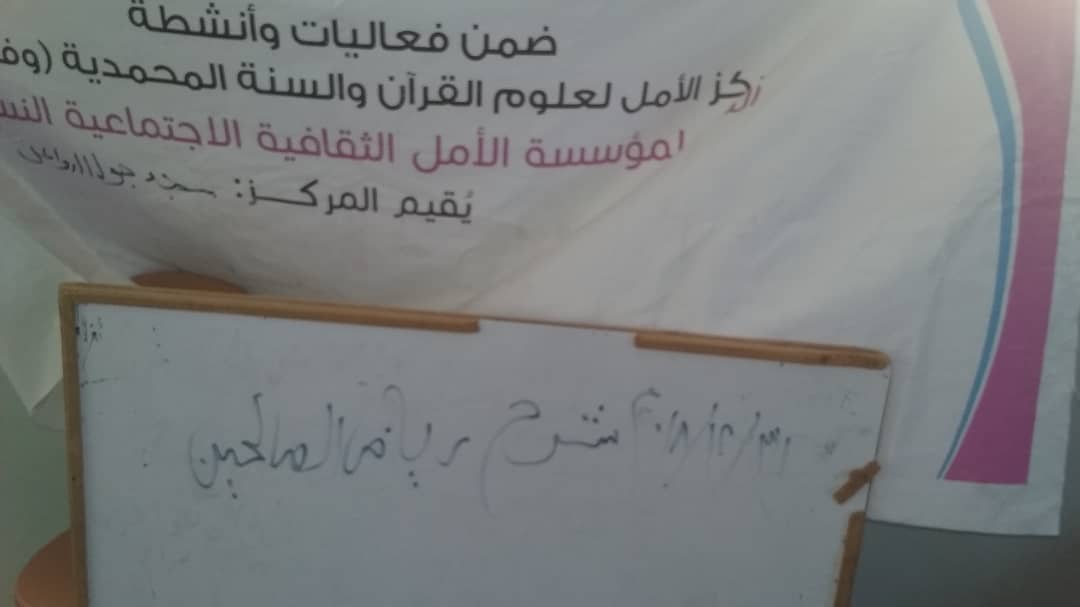 ضمن فعاليات وأنشطة
ركز الأمل لعلوم القرآن والسنة المحمدية (وف
لمؤسسة الأمل الثقافية الاجتماعية النس
يُقيم المركــز:
شرح رياض الصالحين